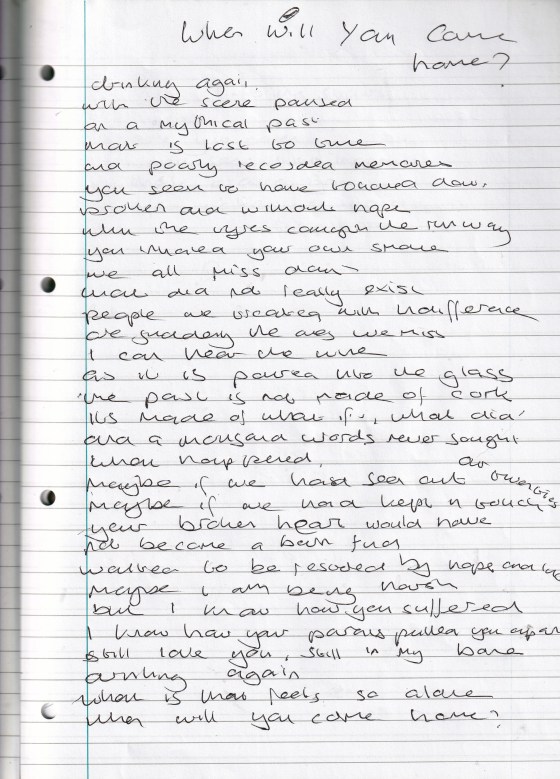 When Will You Come
home?
drinking again.
with the scene paused
on a mythical past
that is lost to time
and poorly recorded memories
you seem to have touched down,
broken and without hope
when the tyres caught the runway
you inhaled your own smoke
we all miss
that did not really exist
people we treated with indifference
are suddenly the ones we miss
I can hear the wine
as it is poured into the glass
the past is not made of cork
its made of what if's, what did
and a thousand words never sought
what happened.
maybe if we had seen out our
maybe if we had kept in touch
your broken heart would have
not become a
waited to be rescued by hope and
maybe I am being harsh
but I know how you suffered
I know how your parents pulled you apart
still love you, still in my bone
drinking again
what is that feels so alone
when will you come home?